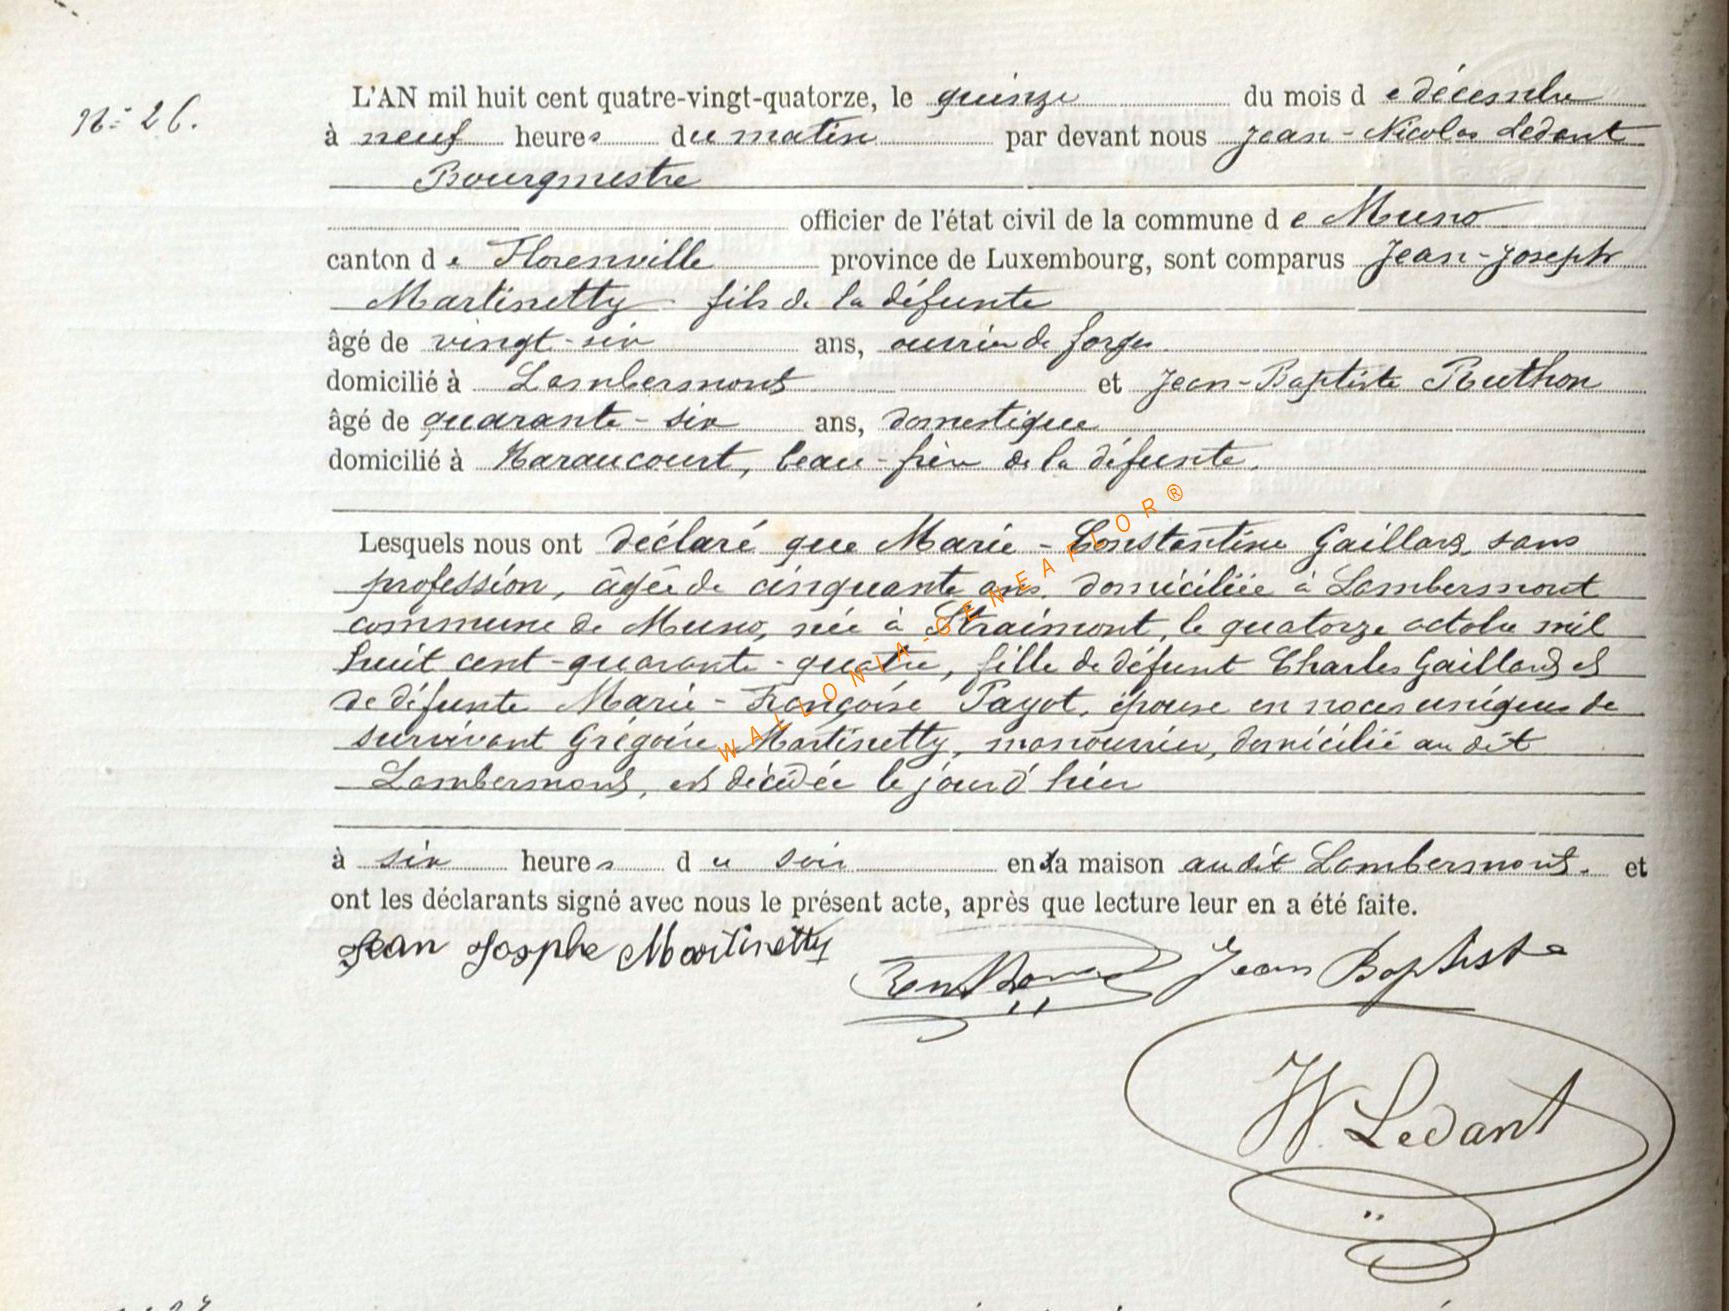 N° 26.
L'AN mil huit cent quatre-vingt-quatorze, le quinze du mois de décembre
à neuf heures du matin par devant nous Jean-Nicolas Ledant
Bourgmestre
officier de l'état civil de la commune de Muno
canton de Florenville province de Luxembourg, sont comparus Jean-Joseph
Martinetty fils de la défunte
âgé de vingt-six ans, ouvrier de forges
domicilié à Lambermont et Jean-Baptiste Ruthon
âgé de quarante-six ans, domestique
domicilié à Haraucourt, beau-frère de la défunte.
Lesquels nous ont déclaré que Marie-Constantine Gaillard, sans
profession, âgée de cinquante ans, domiciliée à Lambermont
commune de Muno, née à Straimont, le quatorze octobre mil
huit cent-quarante-quatre, fille de défunt Charles Gaillard et
de défunte Marie-Françoise Payot, épouse en noces uniques de
survivant Grégoire Martinetty, manouvrier, domicilié au dit
Lambermont, est décédée le jour d'hier
à six heures du soir en sa maison au dit Lambermont. et
ont les déclarants signé avec nous le présent acte, après que lecture leur en a été faite.
Jean Josphe Martinetty Jean Baptiste
Ledant
WALLONIA-GENEAFLOR®